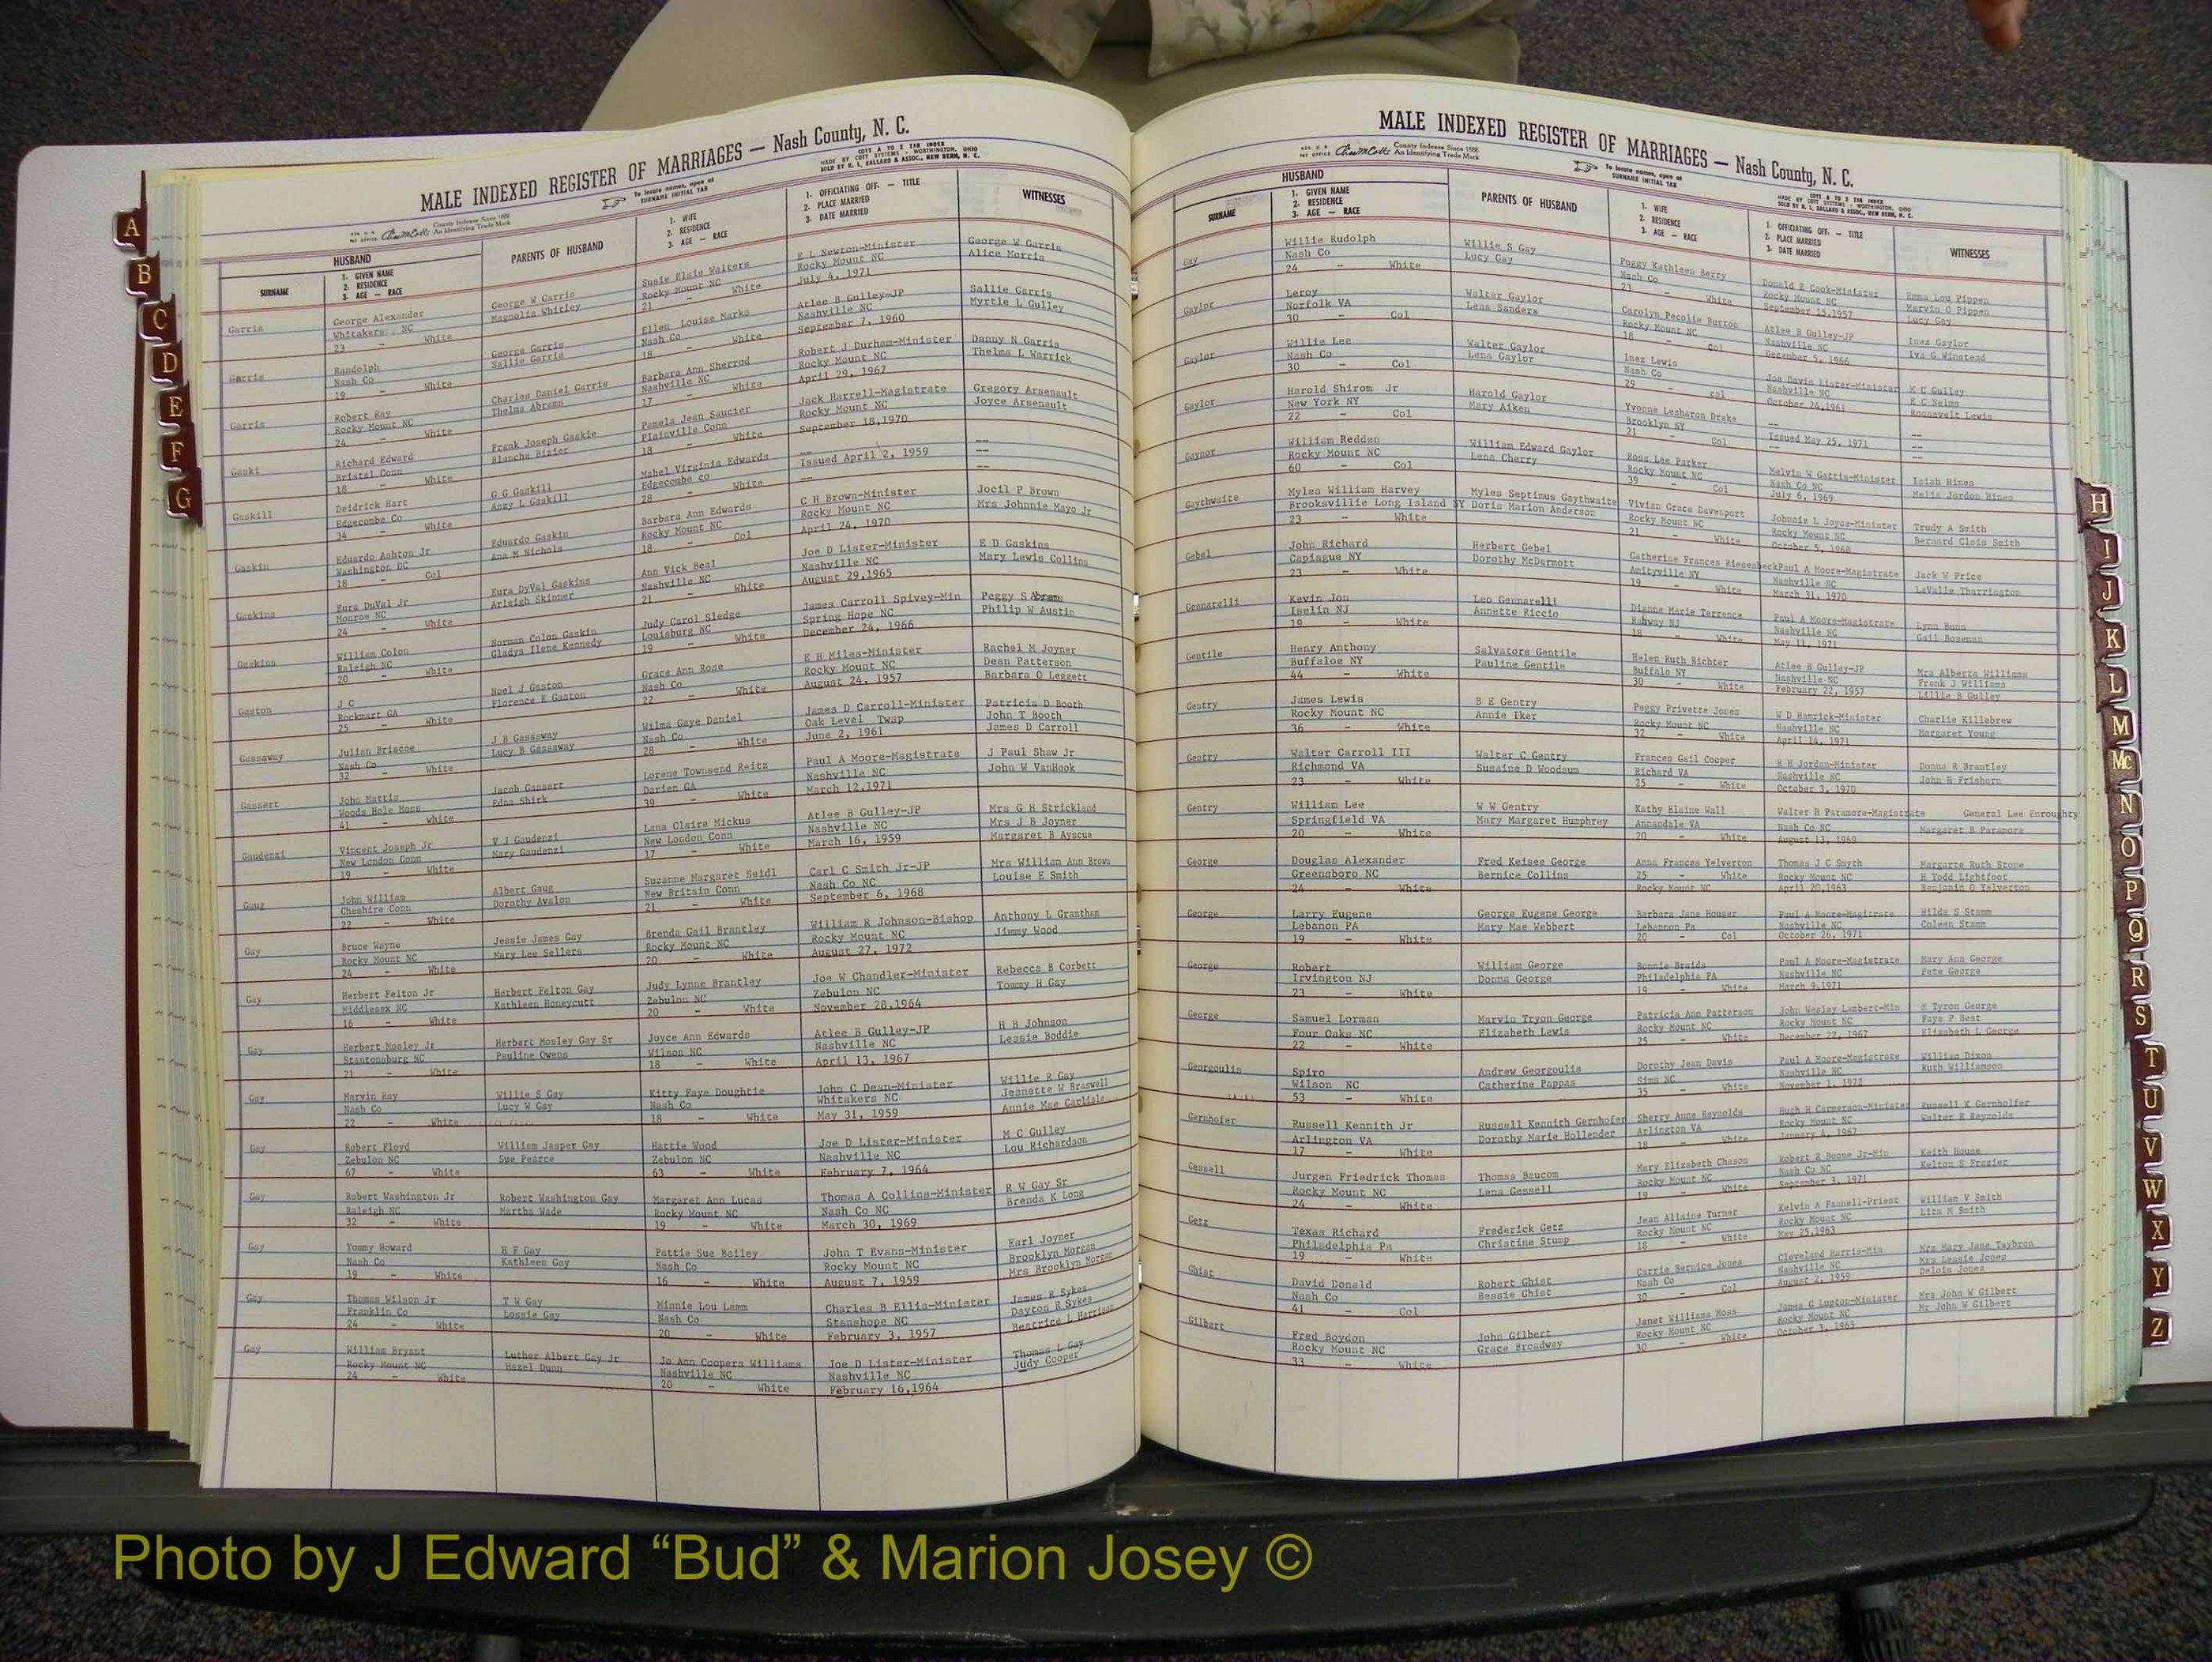 MALE INDEXED REGISTER OF MARRIAGES — Nash County, N. C.
County Indexes Since 1888
An Identifying Trade Mark
To locate names, open at
SURNAME INITIAL TAB
COTT A TO Z TAB INDEX
MADE BY COTT SYSTEMS - WORTHINGTON, OHIO
SOLD BY R. L. BALLARD & ASSOC., NEW BERN, N. C.
HUSBAND
SURNAME
1. GIVEN NAME
2. RESIDENCE
3. AGE — RACE
PARENTS OF HUSBAND
1. WIFE
2. RESIDENCE
3. AGE — RACE
1. OFFICIATING OFF. — TITLE
2. PLACE MARRIED
3. DATE MARRIED
WITNESSES
Garris George Alexander George W Garris Susie Elsie Walters E L Newton-Minister George W Garris
Whitakers NC Magnolia Whitley Rocky Mount NC Rocky Mount NC Alice Morris
23 - White 21 - White July 4, 1971
Garris Randolph George Garris Ellen Louise Marks Atlee B Gulley-JP Sallie Garris
Nash Co Sallie Garris Nash Co Nashville NC Myrtle L Gulley
19 - White 18 - White September 7, 1960
Garris Robert Ray Charles Daniel Garris Barbara Ann Sherrod Robert J Durham-Minister Danny N Garris
Rocky Mount NC Thelma Abrams Nashville NC Rocky Mount NC Thelma L Warrick
24 - White 17 - White April 29, 1967
Gaski Richard Edward Frank Joseph Gaskie Pamela Jean Saucier Jack Harrell-Magistrate Gregory Arsenault
Bristal Conn Blanche Bizier Plainville Conn Rocky Mount NC Joyce Arsenault
18 - White 18 - White September 18,1970
Gaskill Deidrick Hart G G Gaskill Mabel Virginia Edwards -- --
Edgecombe Co Anny L Gaskill Edgecombe co Issued April 2, 1959 --
34 - White 28 - White -- --
Gaskin Eduardo Ashton Jr Eduardo Gaskin Barbara Ann Edwards C H Brown-Minister Jocil P Brown
Washington DC Ana M Nichols Rocky Mount NC Rocky Mount NC Mrs Johnnie Mayo Jr
18 - Col 18 - Col April 24, 1970
Gaskins Eura DuVal Jr Eura DyVal Gaskins Ann Vick Beal Joe D Lister-Minister E D Gaskins
Monroe NC Arleigh Skinner Nashville NC Nashville NC Mary Lewis Collins
24 - White 21 - White August 29,1965
Gaskins William Colon Norman Colon Gaskin Judy Carol Sledge James Carroll Spivey-Min Peggy S Abram
Raleigh NC Gladys Ilene Kennedy Louisburg NC Spring Hope NC Philip W Austin
20 - White 19 - White December 24, 1966
Gaston J C Noel J Gaston Grace Ann Rose E H Miles-Minister Rachel M Joyner
Rockmart GA Florence E Gaston Nash Co Rocky Mount NC Dean Patterson
25 - White 22 - White August 24, 1957 Barbara O Leggett
Gassaway Julian Briscoe J B Gassaway Wilma Gaye Daniel James D Carroll-Minister Patricia D Booth
Nash Co Lucy B Gassaway Nash Co Oak Level Twsp John T Booth
32 - White 28 - White June 2, 1961 James D Carroll
Gassert John Mattis Jacob Gassert Lorene Townsend Reitz Paul A Moore-Magistrate J Paul Shaw Jr
Woods Hole Mass Edna Shirk Darien GA Nashville NC John W VanHook
41 - white 39 - White March 12,1971
Gaudenzi Vincent Joseph Jr V J Gaudenzi Lana Claire Mickus Atlee B Gulley-JP Mrs G H Strickland
New London Conn Mary Gaudenzi New London Conn Nashville NC Mrs J B Joyner
19 - White 17 - White March 16, 1959 Margaret B Ayscue
Gaug John William Albert Gaug Suzanne Margaret Seidl Carl C Smith Jr-JP Mrs William Ann Brown
Cheshire Conn Dorothy Avalon New Britain Conn Nash Co NC Louise E Smith
22 - White 21 - White September 6, 1968
Gay Bruce Wayne Jessie James Gay Brenda Gail Brantley William R Johnson-Bishop Anthony L Grantham
Rocky Mount NC Mary Lee Sellers Rocky Mount NC Rocky Mount NC Jimmy Wood
24 - White 20 - White August 27, 1972
Gay Herbert Felton Jr Herbert Felton Gay Judy Lynne Brantley Joe W Chandler-Minister Rebecca B Corbett
Middlesex NC Kathleen Honeycutt Zebulon NC Zebulon NC Tommy H Gay
16 - White 20 - White November 28,1964
Gay Herbert Mosley Jr Herbert Mosley Gay Sr Joyce Ann Edwards Atlee B Gulley-JP H B Johnson
Stantonsburg NC Pauline Owens Wilson NC Nashville NC Lessie Boddie
21 - White 18 - White April 13, 1967
Gay Marvin Ray Willie S Gay Kitty Faye Doughtie John C Dean-Minister Willie R Gay
Nash Co Lucy W Gay Nash Co Whitakers NC Jeanette W Braswell
22 - White 18 - White May 31, 1959 Annie Mae Carlisle
Gay Robert Floyd William Jasper Gay Hattie Wood Joe D Lister-Minister M C Gulley
Zebulon NC Sue Pearce Zebulon NC Nashville NC Lou Richardson
67 - White 63 - White February 7, 1964
Gay Robert Washington Jr Robert Washington Gay Margaret Ann Lucas Thomas A Collins-Minister R W Gay Sr
Raleigh NC Martha Wade Rocky Mount NC Nash Co NC Brenda K Long
32 - White 19 - White March 30, 1969
Gay Tommy Howard H F Gay Pattie Sue Bailey John T Evans-Minister Earl Joyner
Nash Co Kathleen Gay Nash Co Rocky Mount NC Brooklyn Morgan
19 - White 16 - White August 7, 1959 Mrs Brooklyn Morgan
Gay Thomas Wilson Jr T W Gay Minnie Lou Lamm Charles B Ellis-Minister James R Sykes
Franklin Co Lossie Gay Nash Co Stanshope NC Dayton R Sykes
24 - White 20 - White February 3, 1957 Beatrice L Harrison
Gay William Bryant Luther Albert Gay Jr Jo Ann Coopers Williams Joe D Lister-Minister Thomas L Gay
Rocky Mount NC Hazel Dunn Nashville NC Nashville NC Judy Cooper
24 - White 20 - White February 16,1964
MALE INDEXED REGISTER OF MARRIAGES — Nash County, N. C.
County Indexes Since 1888
An Identifying Trade Mark
To locate names, open at
SURNAME INITIAL TAB
COTT A TO Z TAB INDEX
MADE BY COTT SYSTEMS - WORTHINGTON, OHIO
SOLD BY R. L. BALLARD & ASSOC., NEW BERN, N. C.
HUSBAND
SURNAME
1. GIVEN NAME
2. RESIDENCE
3. AGE — RACE
PARENTS OF HUSBAND
1. WIFE
2. RESIDENCE
3. AGE — RACE
1. OFFICIATING OFF. — TITLE
2. PLACE MARRIED
3. DATE MARRIED
WITNESSES
Gay Willie Rudolph Willie S Gay Puggy Kathleen Berry Donald E Cook-Minister Emma Lou Pippen
Nash Co Lucy Gay Nash Co Rocky Mount NC Marvin O Pippen
24 - White 23 - White September 15,1957 Lucy Gay
Gaylor Leroy Walter Gaylor Carolyn Pecolia Burton Atlee B Gulley-JP Inez Gaylor
Norfolk VA Lena Sanders Rocky Mount NC Nashville NC Iva G Winstead
30 - Col 18 - Col December 5, 1966
Gaylor Willie Lee Walter Gaylor Inez Lewis Joe Davis Lister-Minister M C Gulley
Nash Co Lena Gaylor Nash Co Nashville NC E C Nelms
30 - Col 29 - col October 24,1961 Roosevelt Lewis
Gaylor Harold Shirom Jr Harold Gaylor Yvonne Lesharon Drake -- --
New York NY Mary Aiken Brooklyn NY Issued May 25, 1971 --
22 - Col 21 - Col -- --
Gaynor William Redden William Edward Gaylor Rosa Lee Parker Melvin W Gattis-Minister Isiah Hines
Rocky Mount NC Lena Cherry Rocky Mount NC Nash Co NC Melia Jordon Hines
60 - Col 39 - Col July 6, 1969
Gaythwaite Myles William Harvey Myles Septimus Gaythwaite Vivian Grace Davenport Johnnie L Joyce-Minister Trudy A Smith
Brooksvillie Long Island NY Doris Marion Anderson Rocky Mount NC Rocky Mount NC Bernard Clois Smith
23 - White 21 - White October 5, 1968
Gebel John Richard Herbert Gebel Catherine Frances Riesenbeck Paul A Moore-Magistrate Jack W Price
Capiague NY Dorothy McDermott Amityville NY Nashville NC LaValle Tharrington
23 - White 19 - White March 31, 1970
Gennarelli Kevin Jon Leo Gennarelli Dianne Marie Terrence Paul A Moore-Magistrate Lynn Bunn
Iselin NJ Annette Riccio Rahway NJ Nashville NC Gail Boseman
19 - White 18 - White May 11, 1971
Gentile Henry Anthony Salvatore Gentile Helen Ruth Richter Atlee B Gulley-JP Mrs Alberta Williams
Buffaloe NY Pauline Gentile Buffalo NY Nashville NC Frank J Williams
44 - White 30 - White February 22, 1957 Lillie B Gulley
Gentry James Lewis B E Gentry Peggy Privette Jones W D Hamrick-Minister Charlie Killebrew
Rocky Mount NC Annie Iker Rocky Mount NC Nashville NC Margaret Young
36 - White 32 - White April 14, 1971
Gentry Walter Carroll III Walter C Gentry Frances Gail Cooper R H Jordan-Minister Donna R Brantley
Richmond VA Susaine D Woodsum Richard VA Nashville NC John H Frisborn
23 - White 25 - White October 3, 1970
Gentry William Lee W W Gentry Kathy Elaine Wall Walter H Paramore-Magistrate General Lee Enroughty
Springfield VA Mary Margaret Humphrey Annandale VA Nash Co NC Margaret B Paramore
20 - White 20 - White August 13, 1969
George Douglas Alexander Fred Keisee George Anna Frances Yelverton Thomas J C Smyth Margarte Ruth Stone
Greensboro NC Bernice Collins 25 - White Rocky Mount NC H Todd Lightfoot
24 - White Rocky Mount NC April 20,1963 Benjamin O Yelverton
George Larry Eugene George Eugene George Barbara Jane Houser Paul A Moore-Magitrate Hilda S Stamm
Lebanon PA Mary Mae Webbert Lebannon Pa Nashville NC Coleen Stamm
19 - White 20 - Col October 26, 1971
George Robert William George Bonnie Braids Paul A Moore-Magistrate Mary Ann George
Irvington NJ Donna George Philadelphia PA Nashville NC Pete George
23 - White 19 - White March 9,1971
George Samuel Lorman Marvin Tryon George Patricia Ann Patterson John Wesley Lambert-Min M Tyron George
Four Oaks NC Elizabeth Lewis Rocky Mount NC Rocky Mount NC Faye P Best
22 - White 25 - White December 22, 1967 Elizabeth L George
Georgoulis Spiro Andrew Georgoulis Dorothy Jean Davis Paul A Moore-Magistrate William Dixon
Wilson NC Catherine Pappas Sims NC Nashville NC Ruth Williamson
53 - White 35 - White November 1, 1972
Gernhofer Russell Kennith Jr Russell Kennith Gernhofer Sherry Anne Reynolds Hugh H Cannerson-Minister Russell K Gernholfer
Arlington VA Dorothy Marie Hollender Arlington VA Rocky Mount NC Walter R Reynolds
17 - White 18 - White January 4, 1967
Gessell Jurgen Friedrick Thomas Thomas Baucom Mary Elizabeth Chason Robert R Boone Jr-Min Keith House
Rocky Mount NC Lena Gessell Rocky Mount NC Nash Co NC Kelton S Frazier
24 - White 19 - White September 3, 1971
Getz Texas Richard Frederick Getz Jean Allaine Turner Kelvin A Fannell-Priest William V Smith
Philadelphia Pa Christine Stump Rocky Mount NC Rocky Mount NC Lita M Smith
19 - White 18 - White May 25,1963
Ghist David Donald Robert Ghist Carrie Bernice Jones Cleveland Harris-Min Mrs Mary Jane Taybron
Nash Co Bessie Ghist Nash Co Nashville NC Mrs Lessie Jones
41 - Col 30 - Col August 2, 1959 Delois Jones
Gilbert Fred Boydon John Gilbert Janet Williams Moss James G Lupton-Minister Mrs John W Gilbert
Rocky Mount NC Grace Broadwey Rocky Mount NC Rocky Mount NC Mr John W Gilbert
33 - White 30 - White October 3, 1965
A
B
C
D
E
F
G
H
I
J
K
L
M
Mc
N
O
P
Q
R
S
T
U
V
W
X
Y
Z
Photo by J Edward “Bud” & Marion Josey ©